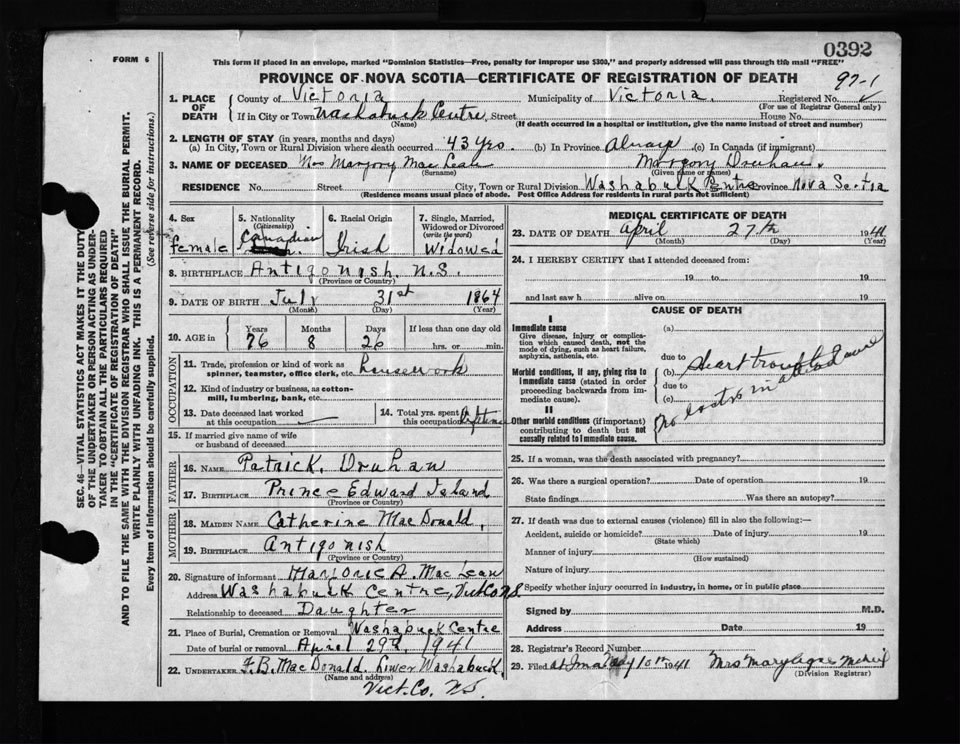 0392
FORM 6
This form if placed in an envelope, marked "Dominion Statistics—Free, penalty for improper use $300," and properly addressed will pass through the mail "FREE"
PROVINCE OF NOVA SCOTIA—CERTIFICATE OF REGISTRATION OF DEATH
97-1
SEC. 46—VITAL STATISTICS ACT MAKES IT THE DUTY
OF THE UNDERTAKER OR PERSON ACTING AS UNDER-
TAKER TO OBTAIN ALL THE PARTICULARS REQUIRED
IN THE "CERTIFICATE OF REGISTRATION OF DEATH"
AND TO FILE THE SAME WITH THE DIVISION REGISTRAR WHO SHALL ISSUE THE BURIAL PERMIT.
WRITE PLAINLY WITH UNFADING INK. THIS IS A PERMANENT RECORD.
Every item of Information should be carefully supplied. (See reverse side for instructions.)
1. PLACE OF DEATH County of Victoria Municipality of Victoria. Registered No. ✓
(For use of Registrar General only)
If in City or Town Washabuck Centre, Street House No.
(Name) (If death occurred in a hospital or institution, give the name instead of street and number)
2. LENGTH OF STAY (in years, months and days)
(a) In City, Town or Rural Division where death occurred 43 yrs. (b) In Province always (c) In Canada (if immigrant)
3. NAME OF DECEASED Mrs Marjory MacLean Marjory Douhan.
(Surname) (Given name or names)
RESIDENCE No. Street City, Town or Rural Division Washabuck Centre Province Nova Scotia
(Residence means usual place of abode. Post Office Address for residents in rural parts not sufficient)
4. Sex 5. Nationality (Citizenship) 6. Racial Origin 7. Single, Married, Widowed or Divorced (write the word)
Female Canadian Irish Widowed
8. BIRTHPLACE Antigonish. N.S.
(Province or Country)
9. DATE OF BIRTH July 31st 1864
(Month) (Day) (Year)
10. AGE in Years Months Days If less than one day old
76 8 26 hrs. or min.
OCCUPATION
11. Trade, profession or kind of work as spinner, teamster, office clerk, etc. housework
12. Kind of industry or business, as cotton-mill, lumbering, bank, etc.
13. Date deceased last worked at this occupation 14. Total yrs. spent in this occupation lifetime
15. If married give name of wife or husband of deceased
FATHER
16. NAME Patrick. Douhan
17. BIRTHPLACE Prince Edward Island
(Province or Country)
MOTHER
18. MAIDEN NAME Catherine MacDonald,
19. BIRTHPLACE Antigonish
(Province or Country)
20. Signature of informant Marjorie A. MacLean
Address Washabuck Centre, Vict Co N.S.
Relationship to deceased Daughter
21. Place of Burial, Cremation or Removal Washabuck Centre
Date of burial or removal April 29th, 1941
22. UNDERTAKER F.B. MacDonald, Lower Washabuck.
(Name and address)
Vict. Co. N.S.
MEDICAL CERTIFICATE OF DEATH
23. DATE OF DEATH April 27th 1941
(Month) (Day) (Year)
24. I HEREBY CERTIFY that I attended deceased from:
19 to 19
and last saw h alive on 19
CAUSE OF DEATH
I
Immediate cause (a)
Give disease, injury or complication which caused death, not the mode of dying, such as heart failure, asphyxia, asthenia, etc.
due to
Morbid conditions, if any, giving rise to immediate cause (stated in order proceeding backwards from immediate cause). (b) Heart trouble
due to
(c)
II
Other morbid conditions (if important) contributing to death but not causally related to immediate cause.
no doctor in
25. If a woman, was the death associated with pregnancy?
26. Was there a surgical operation? Date of operation 19
State findings Was there an autopsy?
27. If death was due to external causes (violence) fill in also the following:—
Accident, suicide or homicide? Date of injury 19
(State which)
Manner of injury
(How sustained)
Nature of injury
Specify whether injury occurred in industry, in home, or in public place
Signed by M.D.
Address Date 19
28. Registrar's Record Number
29. Filed at Iona May 10th 1941 Mrs Mary Agnes McNeil
(Division Registrar)